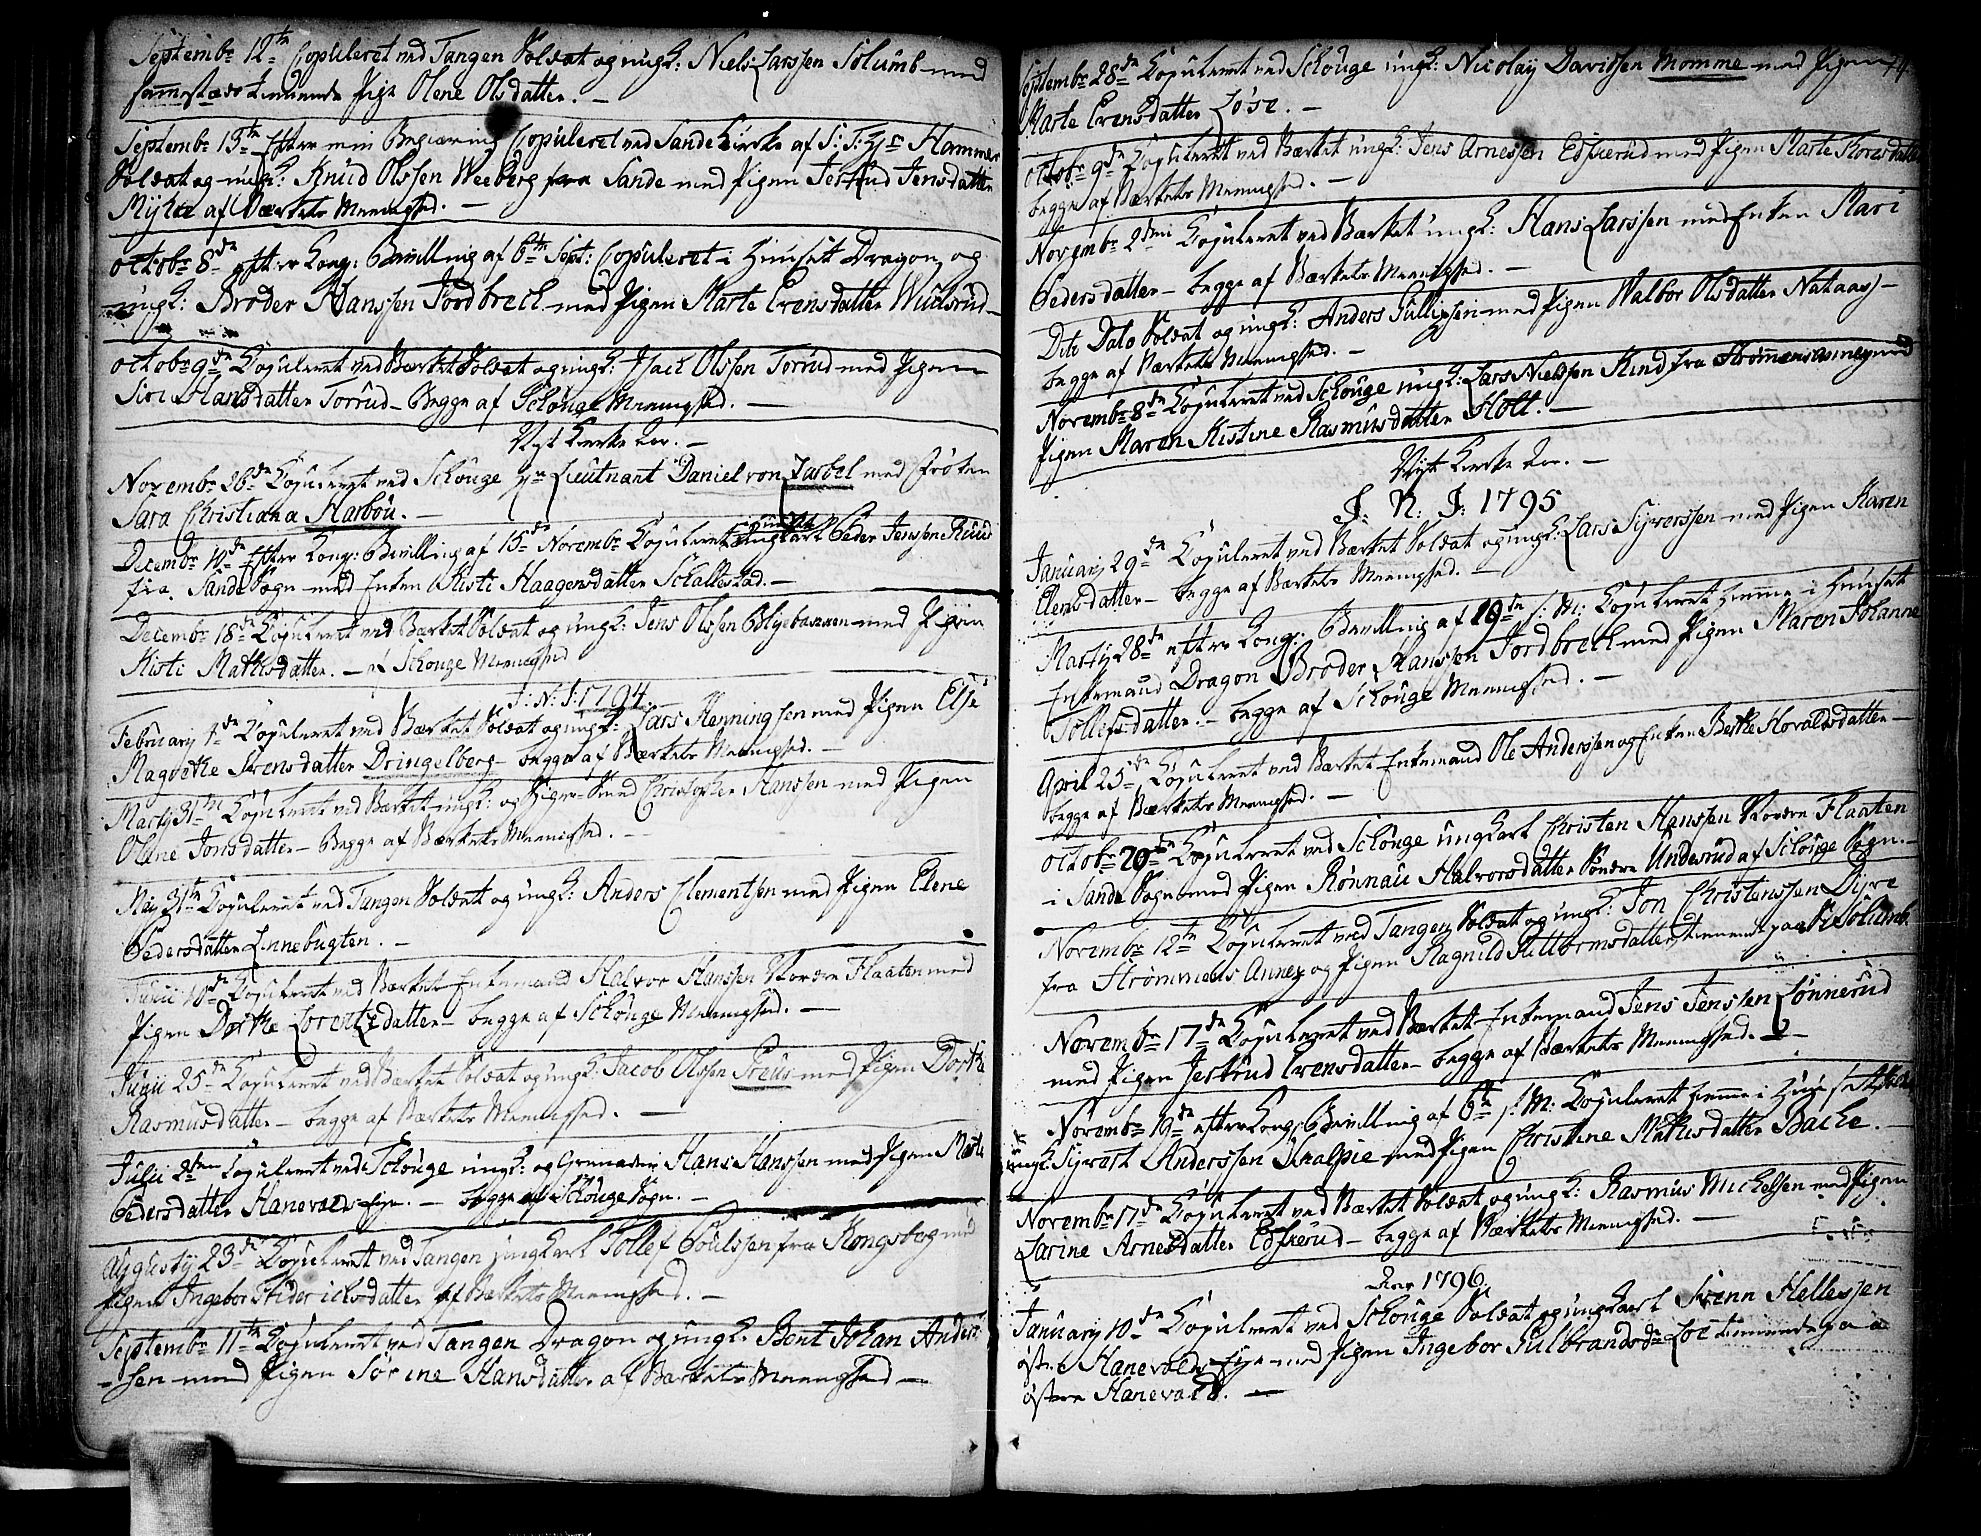 Septembr 12te Copuleret ved Tangen Soldat og ungk: Niels Larssen Solumb med
sammestæds tienende Pige Olene Olsdatter. –
Septembr 13te Efter min Begiæring Copuleret ved Sande Kirke af S: T: Hr Hammer
Soldat og ungk: Knud Olssen Weeberg fra Sande med Pigen Jertrud Jensdatter
Myhre af Værkets Meenighed. –
Octobr 8de efter Kong: Bevilling af 6te Sept: Copuleret i Huuset Dragon og
ungk: Broder Hanssen Jordbrech med Pigen Marte Evensdatter Wuulsrud –
Octobr 9de Copuleret ved Værket Soldat og ungk: Isach Olssen Torrud med Pigen
Siri Hansdatter Torrud – Begge af Schouge Meenighed. –
Nyt Kirke Aar. –
Novembr 26de Copuleret ved Schouge Hr Lieutnant Daniel von Jarbel med Frøken
Sara Christiana Harbou. –
Decembr 10de Efter Kong: Bevilling af 15de Novembr Copuleret ungkarl Peder Jenssen Ruud
fra Sande Sogn med Enken Kisti Haagensdatter Schallestad. –
Decembr 18de Copuleret ved Værket Soldat og ungk: Jens Olssen Blyebakken med Pigen
Kisti Mathisdatter. – af Schouge Meenighed
J: N: J: 1794.
February 1de Copuleret ved Værket Soldat og ungk: Lars Henningsen med Pigen Else
Magrethe Svensdatter Dringelberg – begge af Værkets Meenighed. –
Martÿ 31te Copuleret ved Værket ungk: og Christopher Hanssen med Pigen
Olene Jonsdatter – Begge af Værkets Meenighed. –
May 31te Copuleret ved Tangen Soldatt og ungk: Anders Clementsen med Pigen Elene
Pedersdatter Linnebugten. –
Junii 10de Copuleret ved Værket Enkemand Halvor Hanssen Nordre Flaaten med
Pigen Dorthe Lorentzdatter – begge af Schouge Meenighed. –
Junii 25de Copuleret ved Værket Soldat og ungk: Jacob Olssen Preus med Pigen Dorthe
Rasmusdatter – begge af Værkets Meenighed. –
Julii 2den Copuleret ved Schouge ungk: og Grenadeer Hans Hanssen med Pigen Marte
Pedersdatter Hanevolds Eye. – begge af Schouge Sogn. –
Augusty 23de Copuleret ved Tangen ungkarl Tollef Poulssen fra Kongsberg med
Pigen Ingebor Friderichsdatter af Værkets Meenighed. –
Septembr 11te Copuleret ved Tangen Dragon og ungk: Bent Johan Anders
-sen med Pigen Sørine Hansdatter af Værkets Meenighed –
74.
Septembr 28de Copuleret ved Schouge ungk: Nicolay Davidsen Momme med Pigen
Marte Evensdatter Løse. –
Octobr 9de Copuleret ved Værket ungk: Jens Arnessen Edfærud med Pigen Marte Thoresdatter
begge af Værkets Meenighed. –
Novembr 2den Copuleret ved Værket ungk: Hans Larssen med Enken Mari
Pedersdatter – begge af Værkets Meenighed. –
Dito Dato Soldat og ungk: Anders Gullixsen med Pigen Walbor Olsdatter Nataas –
begge af Værkets Meenighed. –
Novembr 8de Copuleret ved Schouge ungk: Lars Nielssen Kind fra Strømmens Annex med
Pigen Maren Kistine Rasmusdatter Holt. –
Nyt Kirke Aar. –
J: N: J: 1795
January 29de Copuleret ved Værket Soldat og ungk: Lars Siverssen med Pigen Karen
Elensdatter – begge af Værkets Meenighed. –
Martÿ 28de efter Kong: Bevilling af 19de s: M: Copuleret hiemme i Huuset
Enkemand Dragon Broder Hanssen Jordbrech med Pigen Maren Johanne
Tollifsdatter – begge af Schouge Meenighed. –
April 25de Copuleret ved Værket Enkemand Ole Anderssen og Enken Berthe Hovaldsdatter –
begge af Værkets Meenighed. –
Octobr 20de Copuleret ved Schouge ungkarl Christen Hanssen Nordre Flaaten
i Sande Sogn med Pigen Rønnau Halvorsdatter Søndre Undesrud af Schouge Sogn –
Novembr 12te Copuleret ved Tangen Soldat og ungk: Jon Christenssen Dyre
fra Strømmens Annex og Pigen Ragnild Guttormsdatter tienende paa Solumb.
Novembr 17de Copuleret ved Værket Enkemand Jens Jenssen Lønnerud
med Pigen Jertrud Evensdatter – begge af Værkets Meenighed. –
Novembr 19de efter Kong: Bevilling af 6te s: M: Copuleret hiemme i Huuset
ungk: Syvert Anderssen Knalpie med Pigen Christine Mathisdatter Bache. –
Novembr 17de Copuleret ved Værket Soldat og ungk: Rasmus Michelsen med Pigen
Larine Arnesdatter Edfærud – begge af Værkets Meenighed. –
Aar 1796.
January 10de Copuleret ved Schouge Soldat og ungkarl Svenn Hellessen
østre Hanevolds Eye med Pigen Ingebor Gulbrandsdr Loe tienende paa
østre Hanevold. –